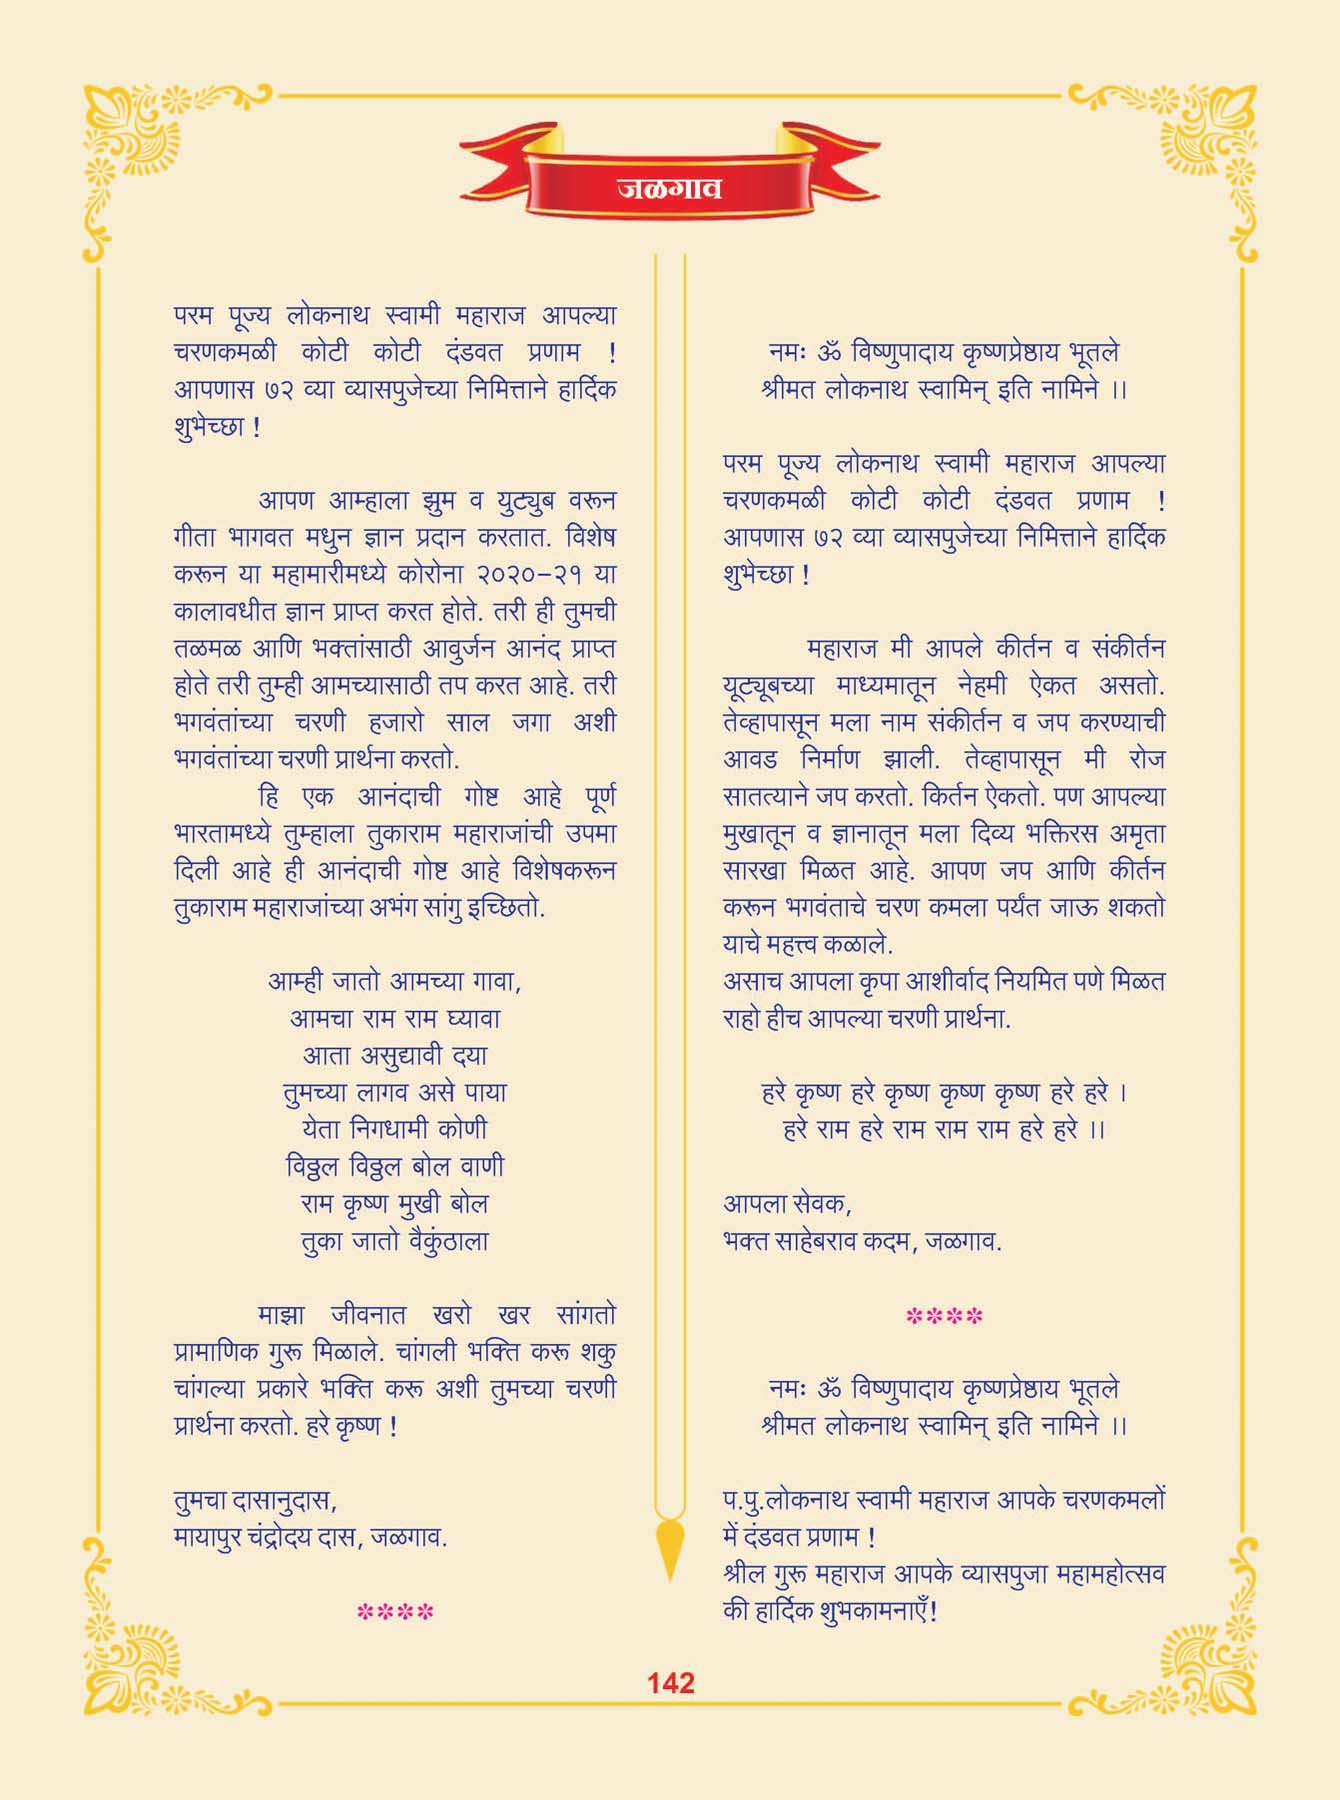 जळगाव
परम पूज्य लोकनाथ स्वामी महाराज आपल्या
चरणकमळी कोटी कोटी दंडवत प्रणाम !
आपणास ७२ व्या व्यासपुजेच्या निमित्ताने हार्दिक
शुभेच्छा !
आपण आम्हाला झुम व युट्युब वरून
गीता भागवत मधुन ज्ञान प्रदान करतात. विशेष
करून या महामारीमध्ये कोरोना २०२०-२१ या
कालावधीत ज्ञान प्राप्त करत होते. तरी ही तुमची
तळमळ आणि भक्तांसाठी आवुर्जन आनंद प्राप्त
होते तरी तुम्ही आमच्यासाठी तप करत आहे. तरी
भगवंतांच्या चरणी हजारो साल जगा अशी
भगवंतांच्या चरणी प्रार्थना करतो.
हि एक आनंदाची गोष्ट आहे पूर्ण
भारतामध्ये तुम्हाला तुकाराम महाराजांची उपमा
दिली आहे ही आनंदाची गोष्ट आहे विशेषकरून
तुकाराम महाराजांच्या अभंग सांगु इच्छितो.
आम्ही जातो आमच्या गावा,
आमचा राम राम घ्यावा
आता असुद्यावी दया
तुमच्या लागव असे पाया
येता निगधामी कोणी
विठ्ठल विठ्ठल बोल वाणी
राम कृष्ण मुखी बोल
तुका जातो वैकुंठाला
माझा जीवनात खरो खर सांगतो
प्रामाणिक गुरू मिळाले. चांगली भक्ति करू शकु
चांगल्या प्रकारे भक्ति करू अशी तुमच्या चरणी
प्रार्थना करतो. हरे कृष्ण !
तुमचा दासानुदास,
मायापुर चंद्रोदय दास, जळगाव.
****
नमः ॐ विष्णुपादाय कृष्णप्रेष्ठाय भूतले
श्रीमत लोकनाथ स्वामिन् इति नामिने ।।
परम पूज्य लोकनाथ स्वामी महाराज आपल्या
चरणकमळी कोटी कोटी दंडवत प्रणाम !
आपणास ७२ व्या व्यासपुजेच्या निमित्ताने हार्दिक
शुभेच्छा !
महाराज मी आपले कीर्तन व संकीर्तन
यूट्यूबच्या माध्यमातून नेहमी ऐकत असतो.
तेव्हापासून मला नाम संकीर्तन व जप करण्याची
आवड निर्माण झाली. तेव्हापासून मी रोज
सातत्याने जप करतो. किर्तन ऐकतो. पण आपल्या
मुखातून व ज्ञानातून मला दिव्य भक्तिरस अमृता
सारखा मिळत आहे. आपण जप आणि कीर्तन
करून भगवंताचे चरण कमला पर्यंत जाऊ शकतो
याचे महत्त्व कळाले.
असाच आपला कृपा आशीर्वाद नियमित पणे मिळत
राहो हीच आपल्या चरणी प्रार्थना.
हरे कृष्ण हरे कृष्ण कृष्ण कृष्ण हरे हरे ।
हरे राम हरे राम राम राम हरे हरे ।।
आपला सेवक,
भक्त साहेबराव कदम, जळगाव.
****
नमः ॐ विष्णुपादाय कृष्णप्रेष्ठाय भूतले
श्रीमत लोकनाथ स्वामिन् इति नामिने ।।
प.पु.लोकनाथ स्वामी महाराज आपके चरणकमलों
में दंडवत प्रणाम !
श्रील गुरू महाराज आपके व्यासपुजा महामहोत्सव
की हार्दिक शुभकामनाएँ!
142